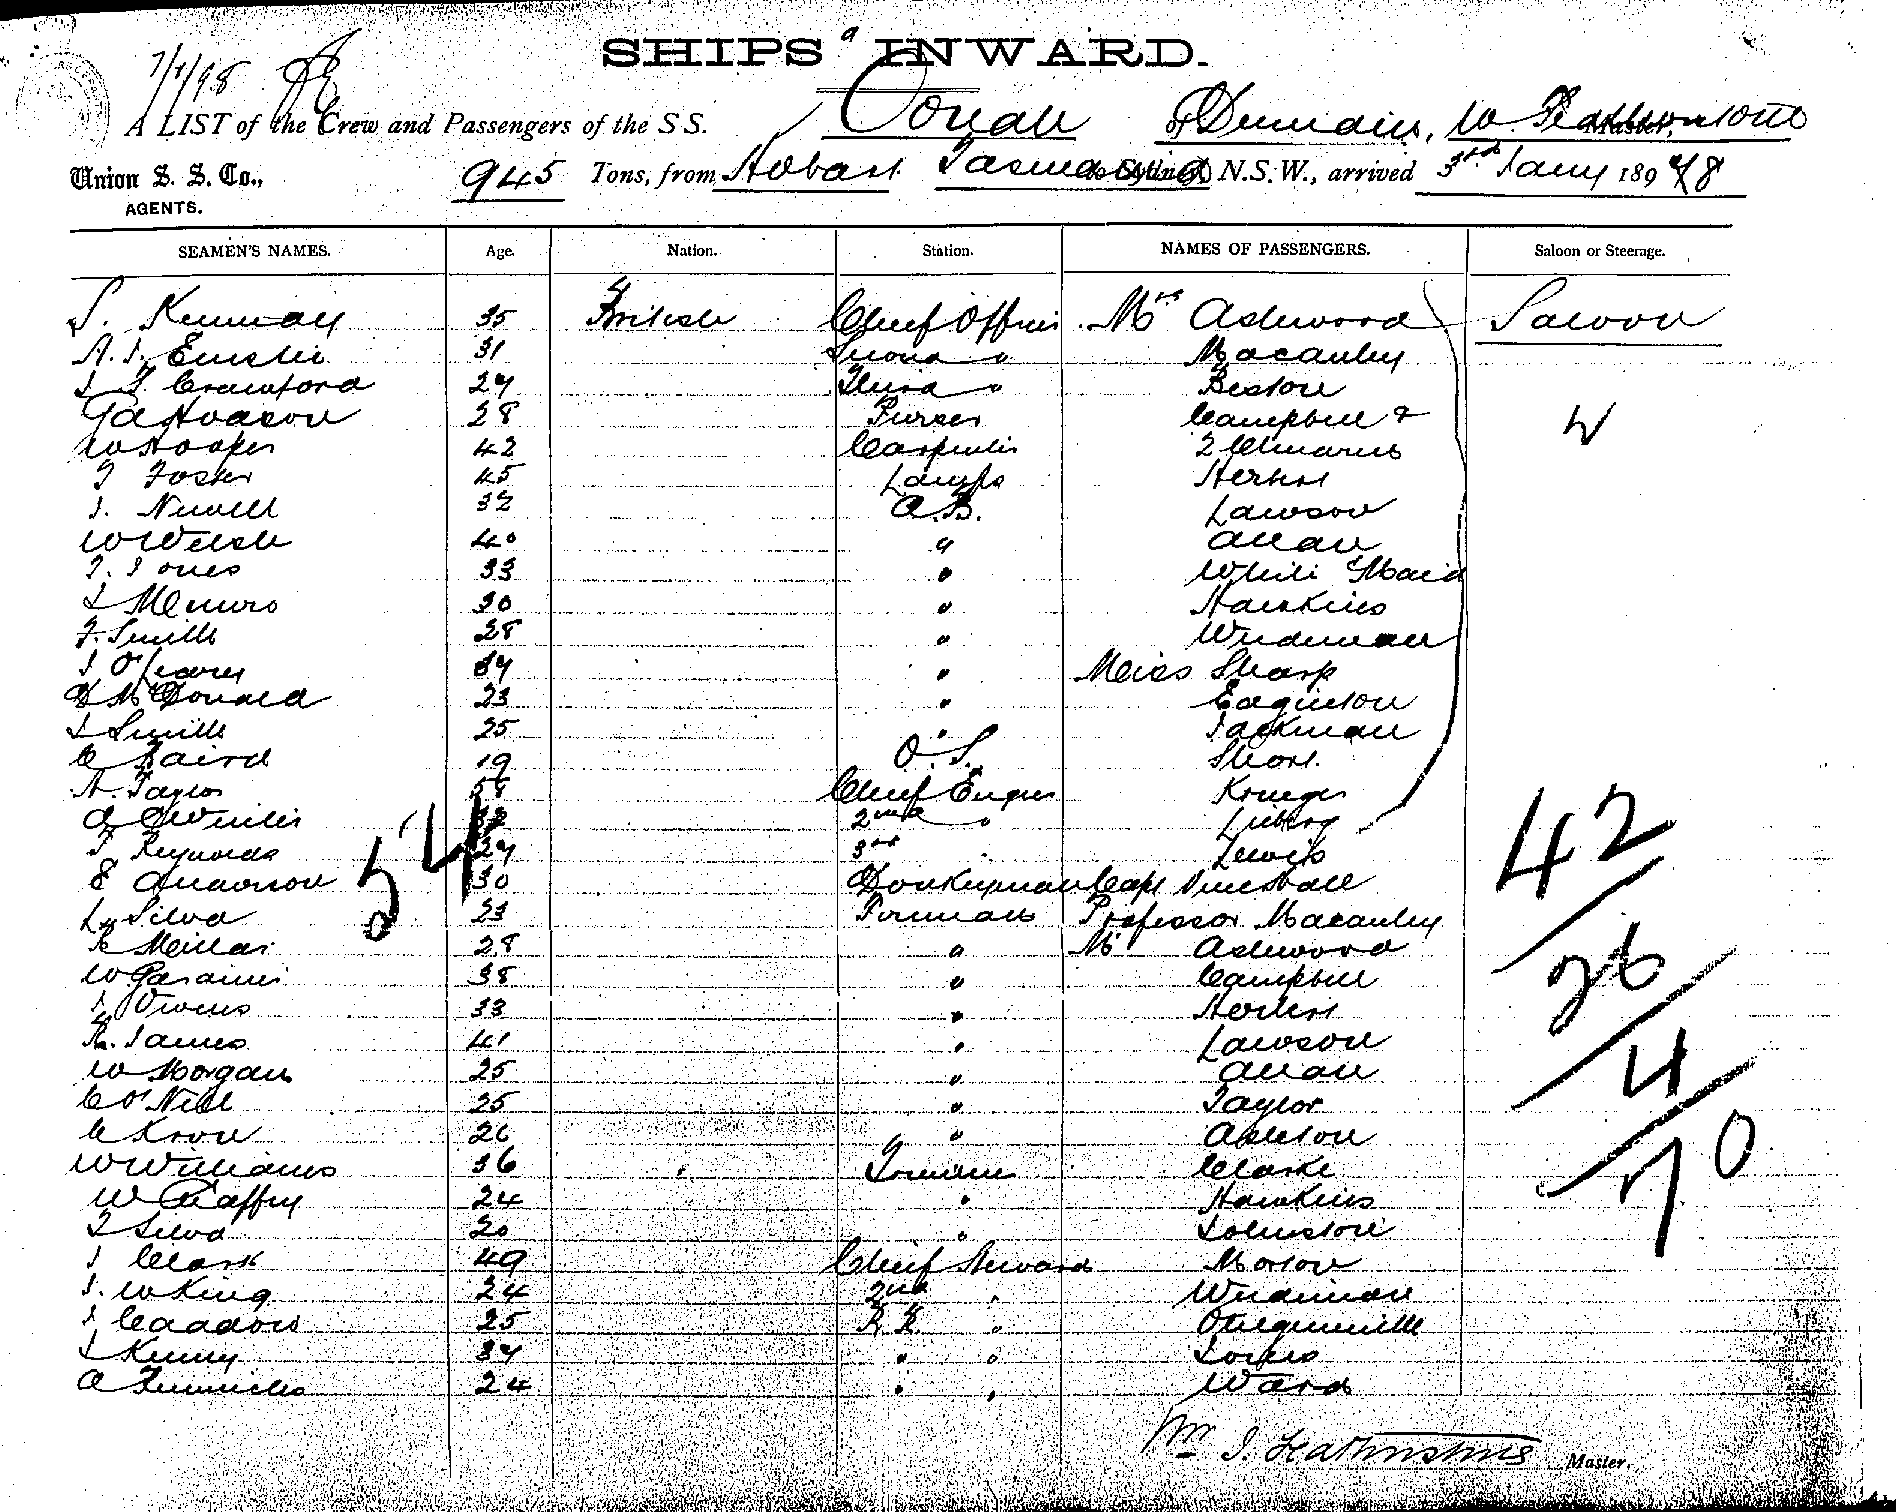 SHIPS INWARD.
7/1/98
A LIST of the Crew and Passengers of the SS. Oonah of Dunedin, W. Featherstone Master,
Union S. S. Co., 945 Tons, from Hobart Tasmania to Sydney, N.S.W., arrived 3rd Jany 1898
AGENTS.
SEAMEN'S NAMES. Age. Nation. Station. NAMES OF PASSENGERS. Saloon or Steerage.
35 British Chief Officer Mrs Ashwood Saloon
31 Second " Macauley
J Crawford 29 Third " Beston
G A Hodson 28 Purser Campbell &
W Hooper 42 Carpenter 2 Children
T Foster 45 Lamps
J. Newell 32 A.B. Lawson
W Welsh 40 " Allan
T. Jones 33 " White Maid
J Munro 30 " Hawkins
F. Smith 28 "
J O'Leary 39 " Miss Sharp
D McDonald 23 " Eaginton
J Smith 25 " Jackman
C Baird 19 O.S. Short
A. Taylor Chief Engner Kruger
2nd "
F Reynolds 29 3rd Lewis
E Anderson 30 Donkeyman Capt
L Silva 23 Fireman Professor Macauley
R Millar 28 " Mr Ashwood
W Gardiner 38 " Campbell
J Owens 33 "
R. James 41 " Lawson
W Morgan 25 " Allan
C O'Neil 25 " Taylor
C Kron 26 " Ashton
W Williams 36 Clarke
W Caffry 24 " Hawkins
T Silva 20 " Johnston
J Clark 49 Chief Steward Morton
J. W King 24 2nd "
J 25 "
J Kenny 39 " "
A 24 " " Ward
54
42
26
4
70
Wm J. Featherstone Master.